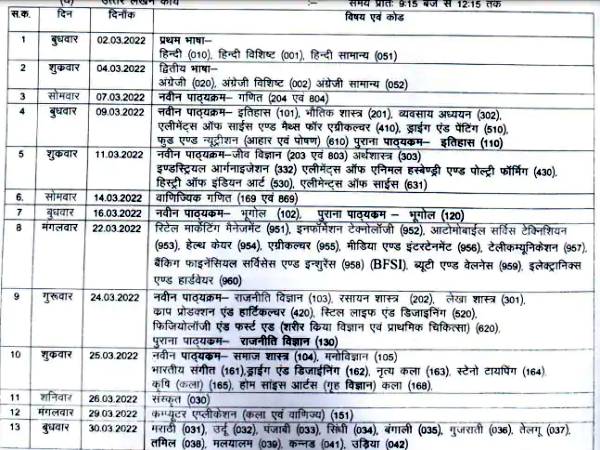 (व) उत्तर लेखन कार्य समय प्रातः 9:15 बजे से 12:15 तक
स.क. दिन दिनॉक विषय एवं कोड
1 बुधवार 02.03.2022 प्रथम भाषा–
हिन्दी (010), हिन्दी विशिष्ट (001), हिन्दी सामान्य (051)
2 शुक्रवार 04.03.2022 द्वितीय भाषा–
अंग्रेजी (020), अंग्रेजी विशिष्ट (002) अंग्रेजी सामान्य (052)
3 सोमवार 07.03.2022 नवीन पाठ्यक्रम– गणित (204 एवं 804)
4 बुधवार 09.03.2022 नवीन पाठ्यक्रम– इतिहास (101), भौतिक शास्त्र (201), व्यवसाय अध्ययन (302),
एलीमेंट्स ऑफ साईंस एण्ड मैथ्स फॉर एग्रीकल्चर (410), ड्राईंग एंड पेंटिंग (510),
फूड एण्ड न्यूट्रीशन (आहार एवं पोषण) (610) पुराना पाठ्यकम– इतिहास (110)
5 शुक्रवार 11.03.2022 नवीन पाठ्यक्रम–जीव विज्ञान (203 एवं 803) अर्थशास्त्र (303)
इण्डस्ट्रियल आर्गनाइजेशन (332) एलीमेंट्स ऑफ एनिमल हस्बेण्ड्री एण्ड पोल्ट्री फॉर्मिंग (430),
हिस्ट्री ऑफ इंडियन आर्ट (530), एलीमेन्ट्स ऑफ साईंस (631)
6. सोमवार 14.03.2022 वाणिज्यिक गणित (169 एवं 869)
7 बुधवार 16.03.2022 नवीन पाठ्यक्रम– भूगोल (102), पुराना पाठ्यकम – भूगोल (120)
8 मंगलवार 22.03.2022 रिटेल मार्केटिंग मैनेजमेंट (951), इनफॉर्मेशन टेक्नोलॉजी (952), आटोमोबाईल सर्विस टेक्निशियन
(953), हेल्थ केयर (954), एग्रीकल्चर (955), मीडिया एण्ड इंटरटेनमेंट (956), टेलीकम्युनिकेशन (957),
बैंकिंग फाइनेंसियल सर्विसेस एण्ड इन्शुरेंस (958) (BFSI), ब्यूटी एण्ड वेलनेस (959), इलेक्ट्रानिक्स
एण्ड हार्डवेयर (960)
9 गुरूवार 24.03.2022 नवीन पाठ्यक्रम– राजनीति विज्ञान (103), रसायन शास्त्र (202), लेखा शास्त्र (301),
काप प्रोडक्शन एंड हार्टिकल्चर (420), स्टिल लाइफ एंड डिजाइनिंग (520),
फिजियोलॉजी एंड फर्स्ट एड (शरीर किया विज्ञान एवं प्राथमिक चिकित्सा) (620),
पुराना पाठ्यकम– राजनीति विज्ञान (130)
10 शुक्रवार 25.03.2022 नवीन पाठ्यक्रम– समाज शास्त्र (104), मनोविज्ञान (105)
भारतीय संगीत (161),ड्राईंग एंड डिजाईनिंग (162), नृत्य कला (163), स्टेनो टायपिंग (164),
कृषि (कला) (165), होम सांइस आर्टस (गृह विज्ञान) कला (168),
11 शनिवार 26.03.2022 संस्कृत (030)
12 मंगलवार 29.03.2022 कम्प्यूटर एप्लीकेशन (कला एवं वाणिज्य) (151)
13 बुधवार 30.03.2022 मराठी (031), उर्दू (032), पंजाबी (033), सिंधी (034), बंगाली (035), गुजराती (036), तेलगू (037),
तमिल (038), मलयालम (039), कन्नड (041), उडिया (042)